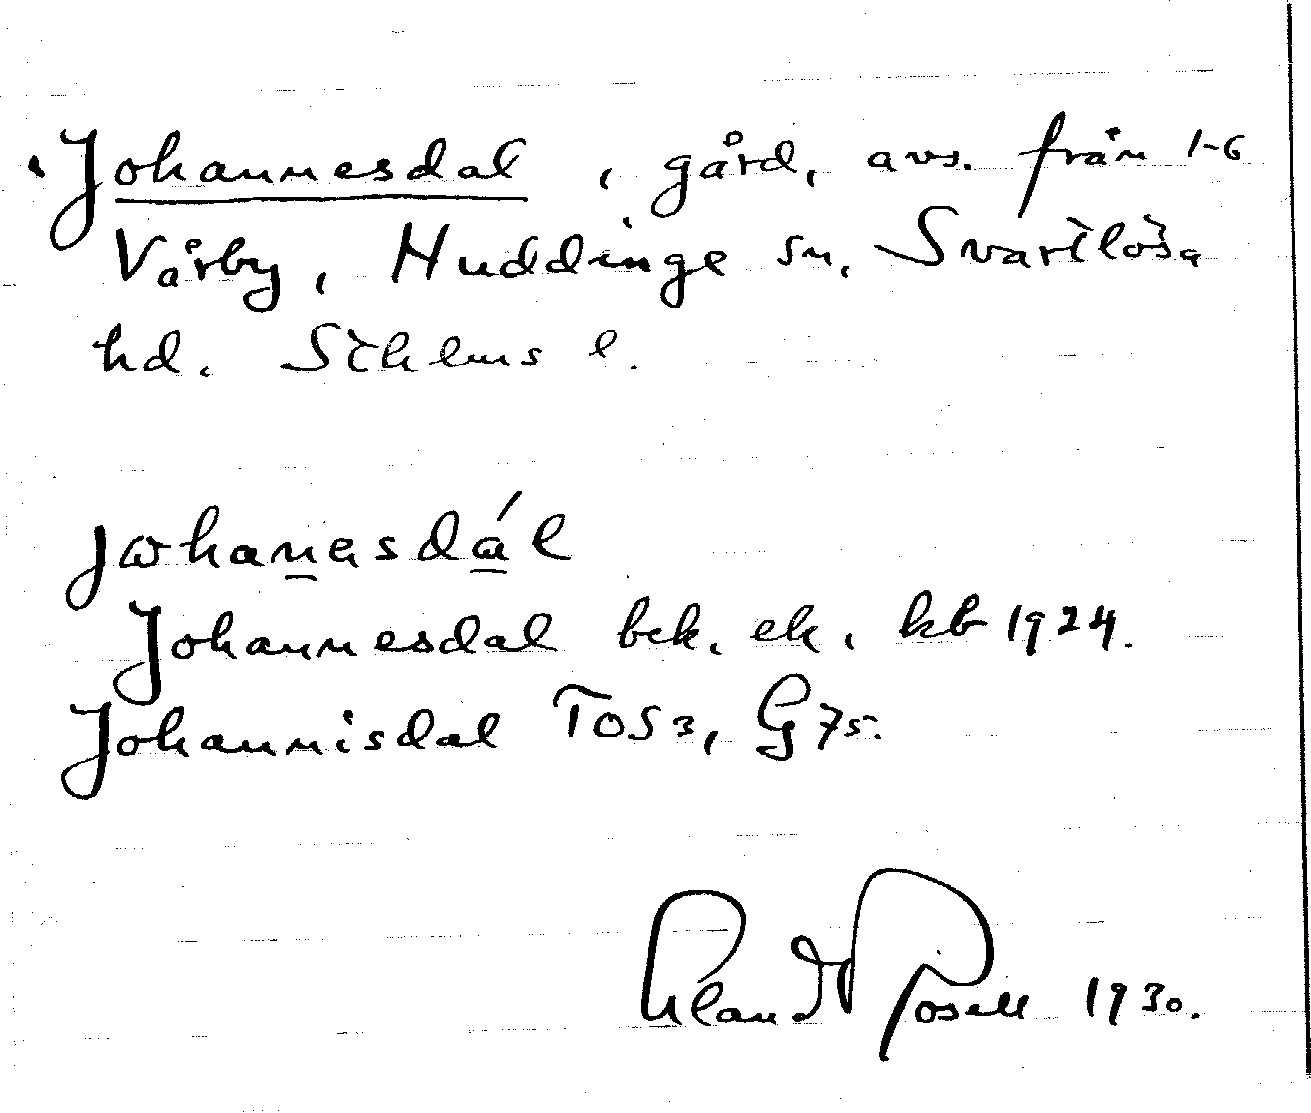 Johannesdal, gård, avs. från 1-6
Vårby, Huddinge sn, Svartlösa
hd. Sthlms l.
johanesdál
Johannesdal bek. ek. kb 1924.
Johannisdal TOS3, G75.
Erland Rosell 1930.